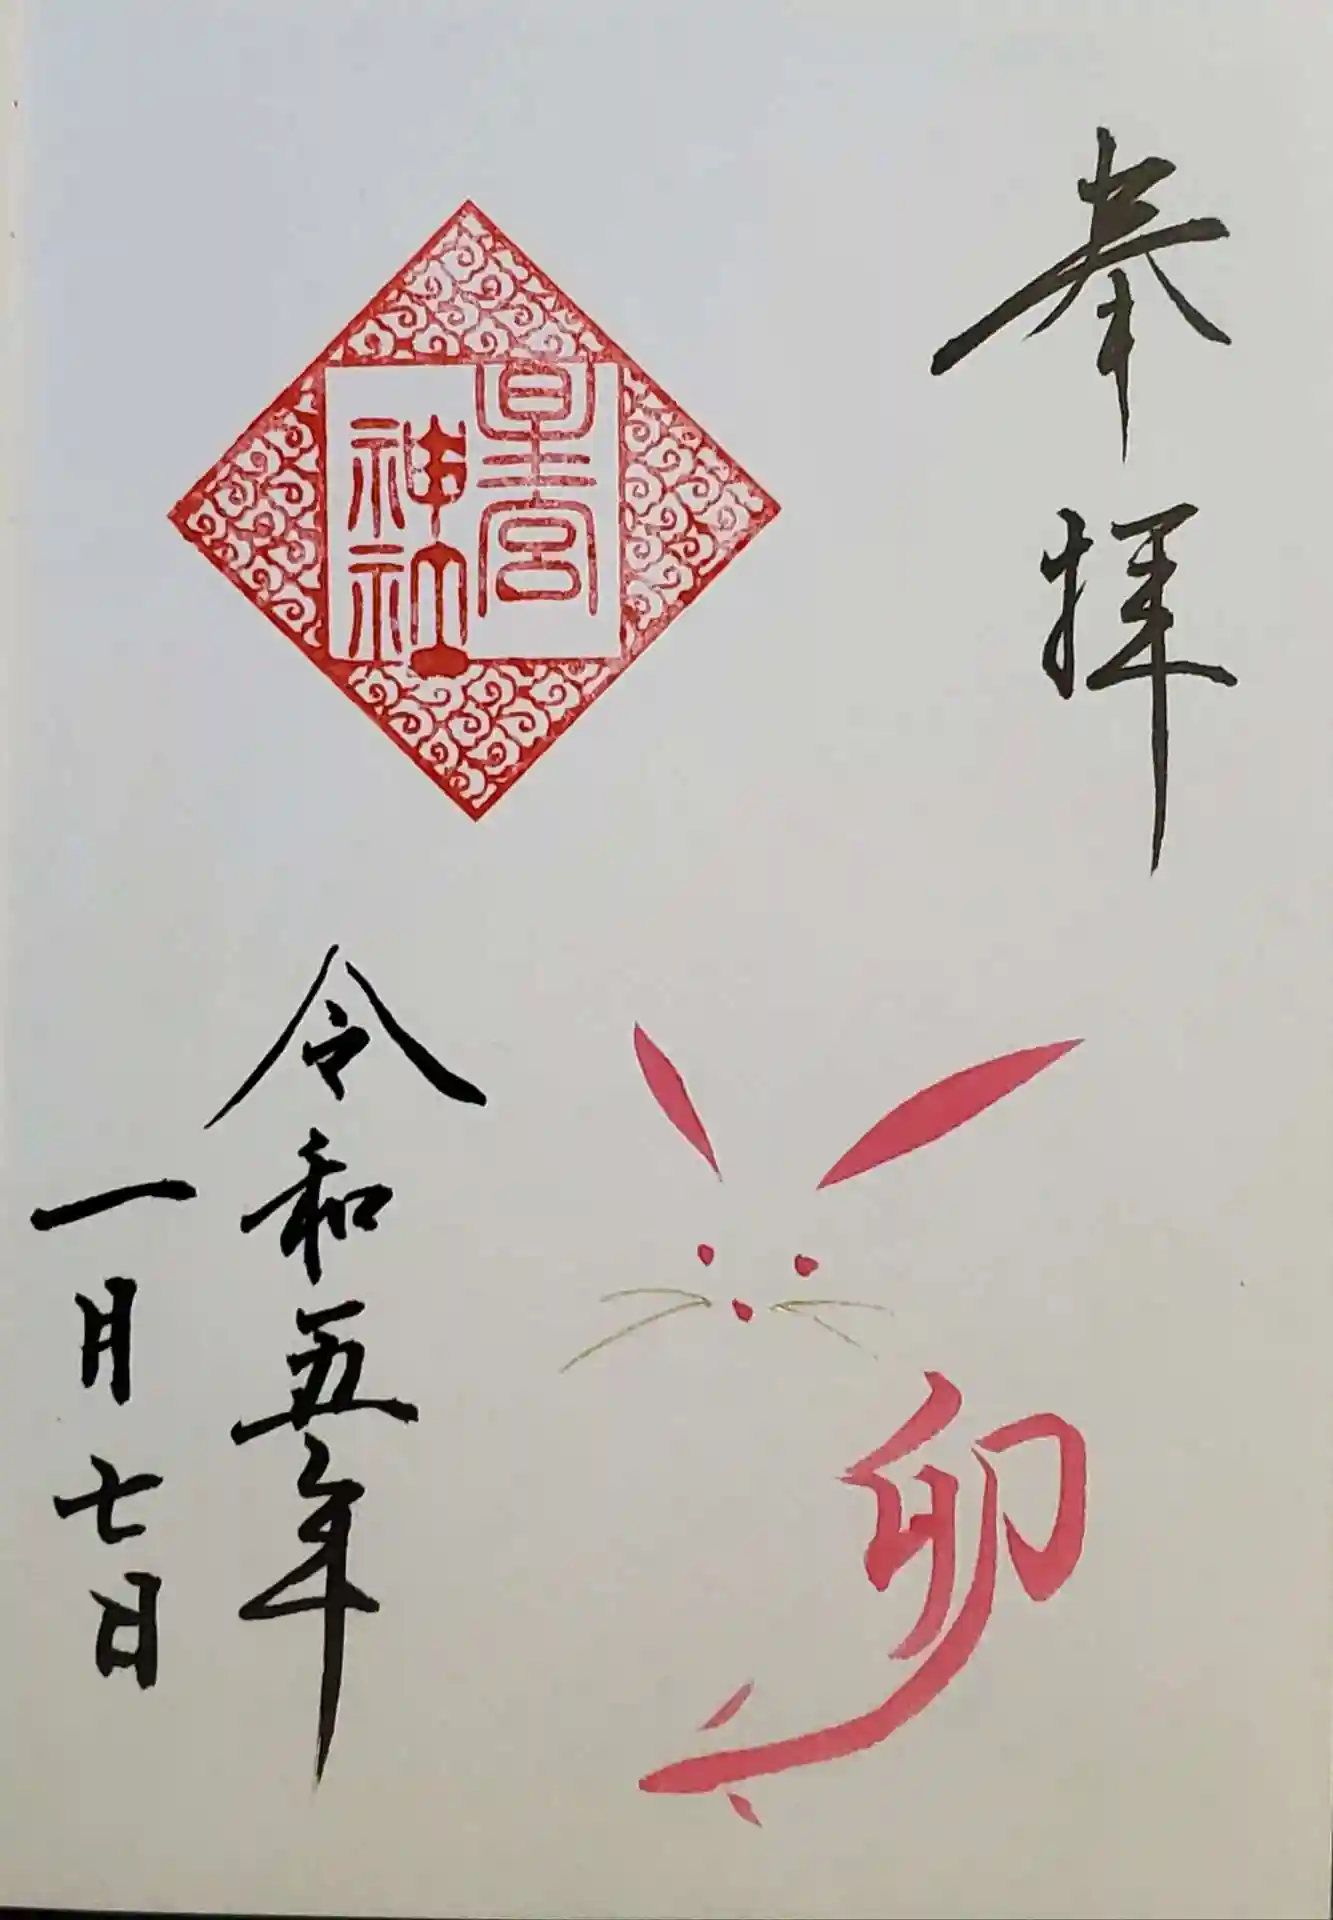 奉拝
卯
皇宮
神社
令和五年
一月七日